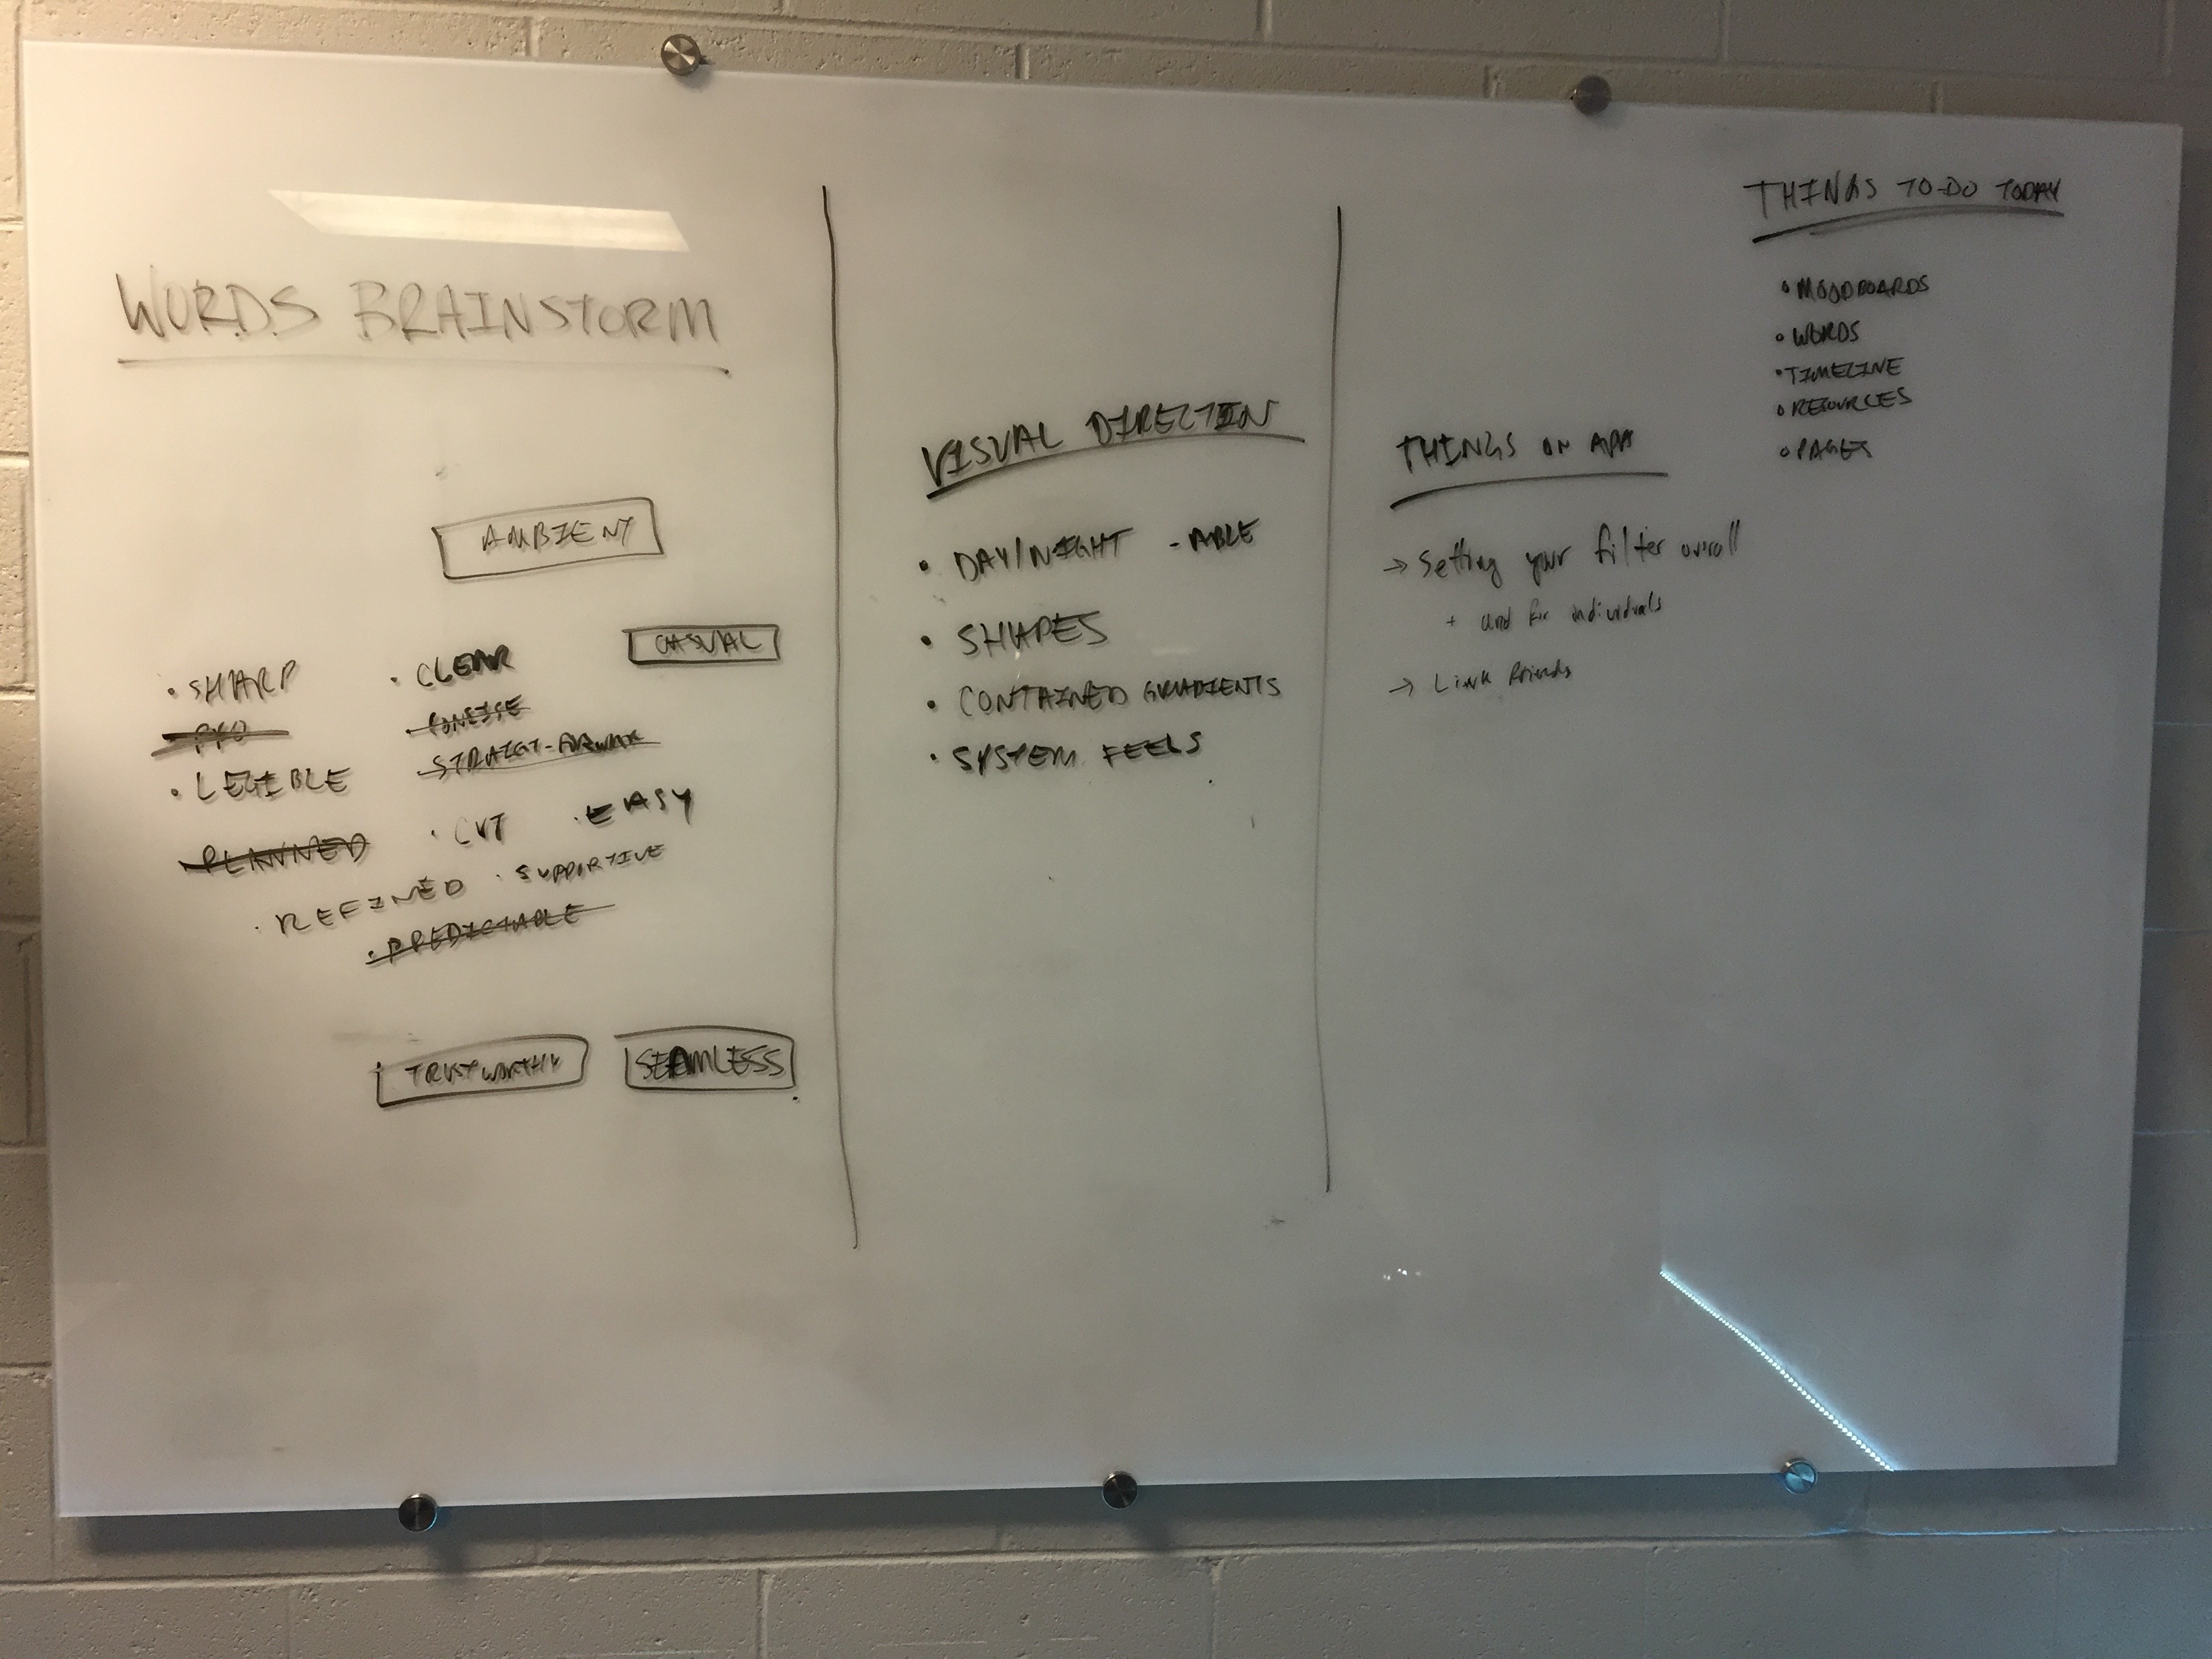 WORDS BRAINSTORM
AMBIENT
CASUAL
• SHARP
PRO
• LEGIBLE
PLANNED
• CLEAR
• CONCISE
STRAIGT-FORWAR
• CUT
• EASY
• REFINED
• SUPPORTIVE
• PREDICTABLE
TRUSTWORTHY
SEAMLESS
VISUAL DIRECTION
• DAY/NIGHT -ABLE
• SHAPES
• CONTAINED GRADIENTS
• SYSTEM FEELS
THINGS ON APP
→ Setting your filter overall
+ and for individuals
→ Link friends
THINGS TO-DO TODAY
• MOODBOARDS
• WORDS
• TIMELINE
• RESOURCES
• PAGES